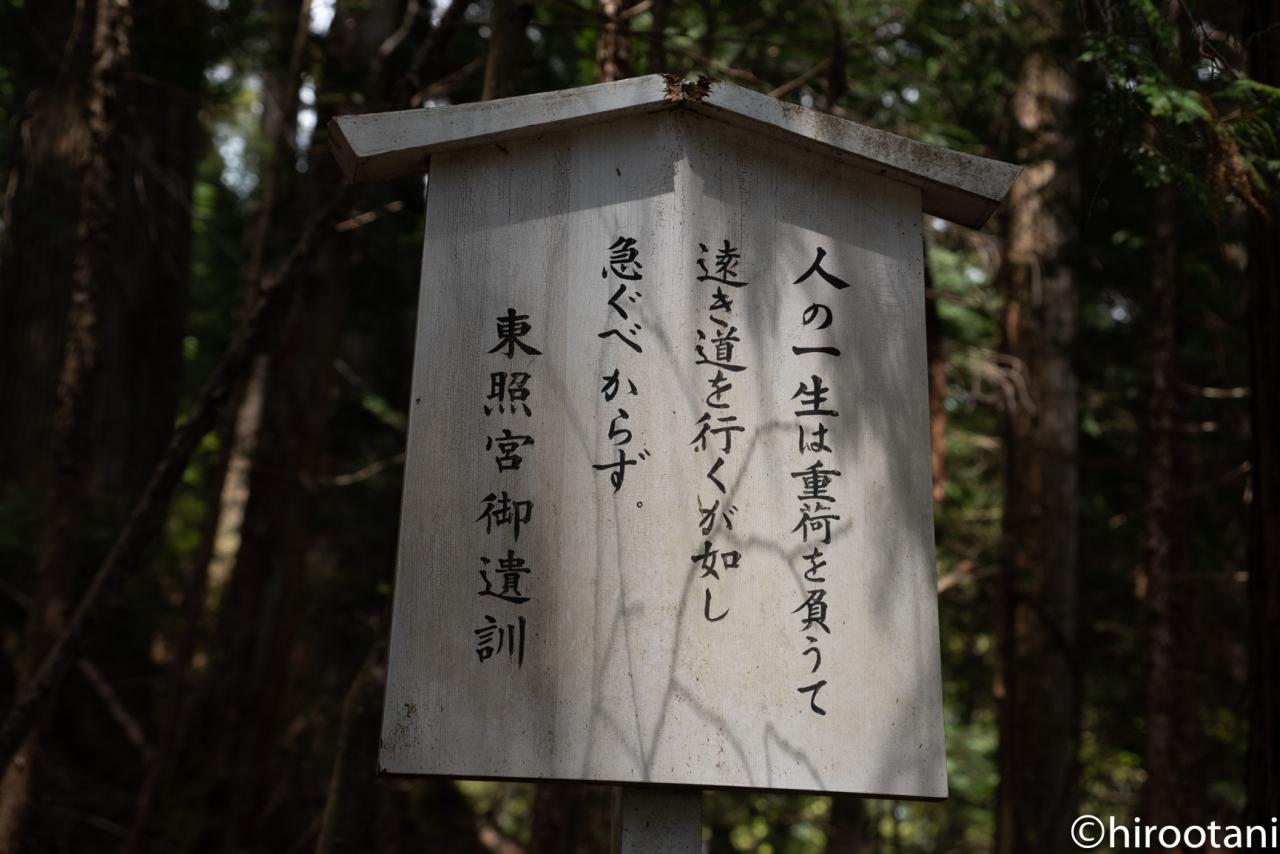 人の一生は重荷を負うて
遠き道を行くが如し
急ぐべからず。
東照宮御遺訓
©hirootani